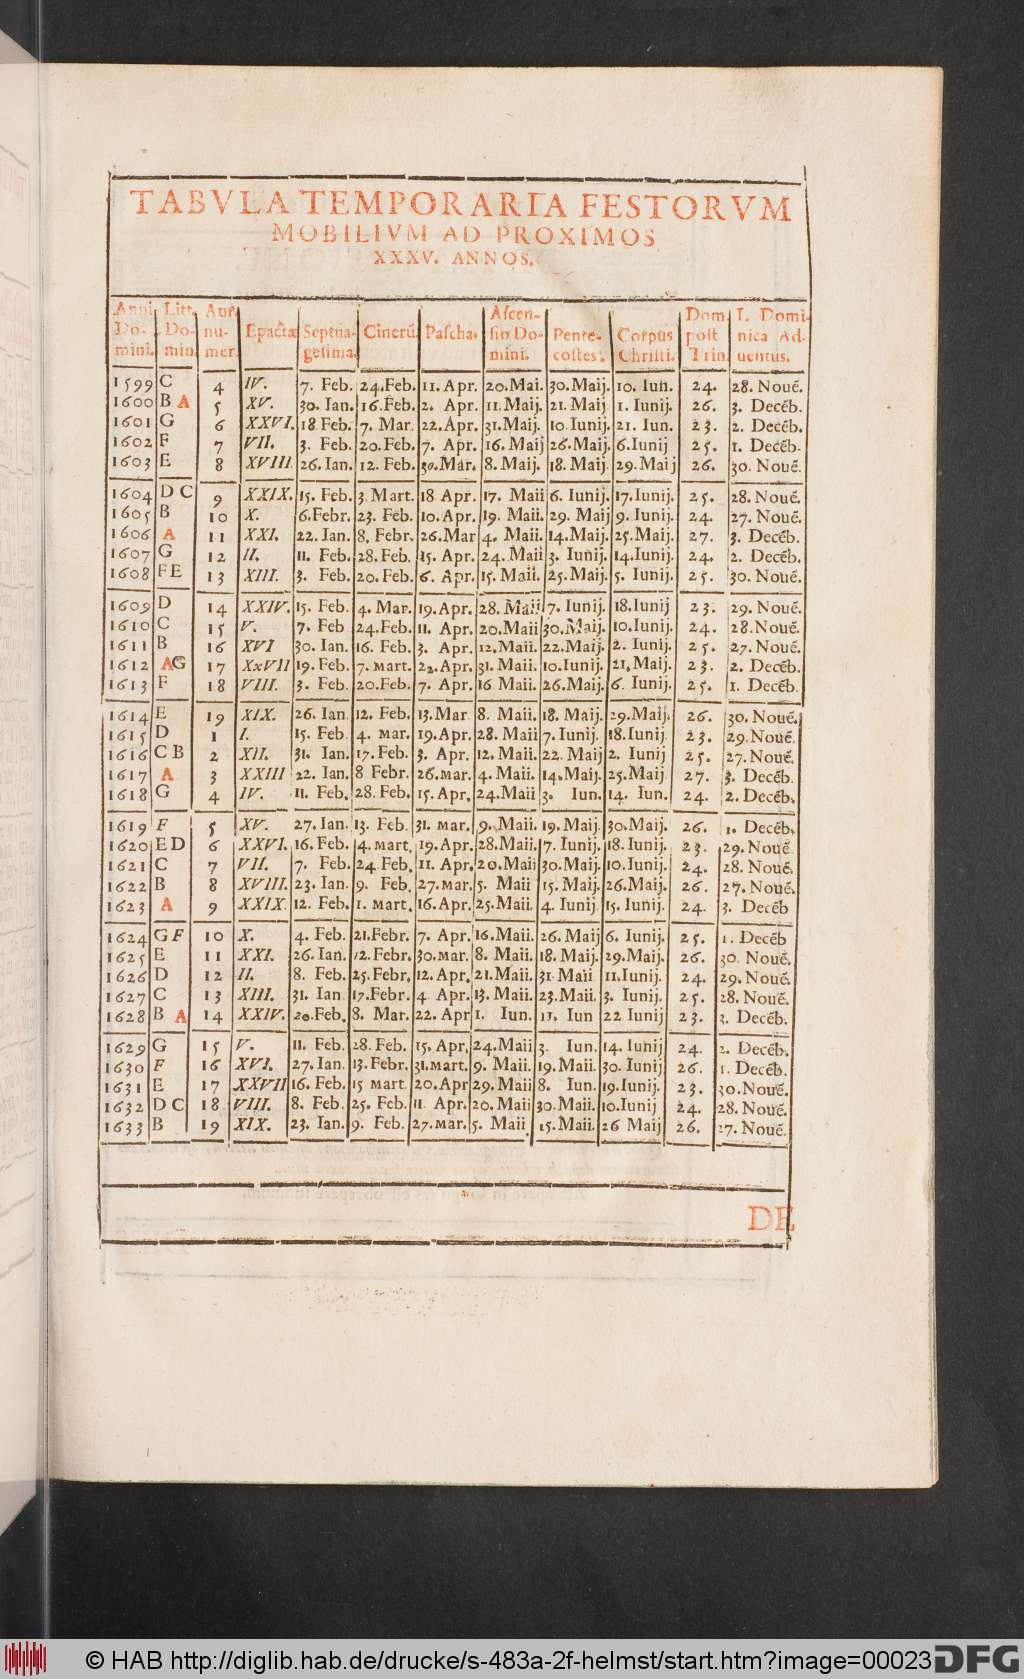 TABVLA TEMPORARIA FESTORVM
MOBILIVM AD PROXIMOS
XXXV. ANNOS.
Anni Domini. Litt. Domin. Aur. numer. Epactæ Septuagesima. Cinerũ. Pascha. Ascensio Domini. Pentecostes. Corpus Christi. Dom. post Trin. I. Dominica Aduentus.
1599 C 4 IV. 7. Feb. 24. Feb. 11. Apr. 20. Mai. 30. Maij. 10. Iun. 24. 28. Nouẽ.
1600 B A 5 XV. 30. Ian. 16. Feb. 2. Apr. 11. Maij. 21. Maij 1. Iunij. 26. 3. Decẽb.
1601 G 6 XXVI. 18 Feb. 7. Mar. 22. Apr. 31. Maij. 10. Iunij. 21. Iun. 23. 2. Decẽb.
1602 F 7 VII. 3. Feb. 20. Feb. 7. Apr. 16. Maij 26. Maij. 6. Iunij 25. 1. Decẽb.
1603 E 8 XVIII. 26. Ian. 12. Feb. 30. Mar. 8. Maij. 18. Maij. 29. Maij 26. 30. Nouẽ.
1604 D C 9 XXIX. 15. Feb. 3. Mart. 18 Apr. 17. Maii 6. Iunij. 17. Iunij. 25. 28. Nouẽ.
1605 B 10 X. 6. Febr. 23. Feb. 10. Apr. 19. Maii. 29. Maij 9. Iunij. 24. 27. Nouẽ.
1606 A 11 XXI. 22. Ian. 8. Febr. 26. Mar 4. Maii. 14. Maij. 25. Maij. 27. 3. Decẽb.
1607 G 12 II. 11. Feb. 28. Feb. 15. Apr. 24. Maii 3. Iunij. 14. Iunij. 24. 2. Decẽb.
1608 FE 13 XIII. 3. Feb. 20. Feb. 6. Apr. 15. Maii. 25. Maij. 5. Iunij. 25. 30. Nouẽ.
1609 D 14 XXIV. 15. Feb. 4. Mar. 19. Apr. 28. Maii 7. Iunij. 18. Iunij 23. 29. Nouẽ.
1610 C 15 V. 7. Feb 24. Feb. 11. Apr. 20. Maii 30. Maij. 10. Iunij. 24. 28. Nouẽ.
1611 B 16 XVI 30. Ian. 16. Feb. 3. Apr. 12. Maii. 22. Maij. 2. Iunij. 25. 27. Nouẽ.
1612 AG 17 XxVII 19. Feb. 7. mart. 22. Apr. 31. Maii. 10. Iunij. 21. Maij. 23. 2. Decẽb.
1613 F 18 VIII. 3. Feb. 20. Feb. 7. Apr. 16 Maii. 26. Maij. 6. Iunij. 25. 1. Decẽb.
1614 E 19 XIX. 26. Ian. 12. Feb. 13. Mar 8. Maii. 18. Maij. 29. Maij. 26. 30. Nouẽ.
1615 D 1 I. 15. Feb. 4. mar. 19. Apr. 28. Maii 7. Iunij. 18. Iunij 23. 29. Nouẽ.
1616 C B 2 XII. 31. Ian. 17. Feb. 3. Apr. 12. Maii. 22. Maij 2. Iunij 25. 27. Nouẽ.
1617 A 3 XXIII 22. Ian. 8 Febr. 26. mar. 4. Maii. 14. Maij. 25. Maij 27. 3. Decẽb.
1618 G 4 IV. 11. Feb. 28. Feb. 15. Apr. 24. Maii 3. Iun. 14. Iun. 24. 2. Decẽb.
1619 F 5 XV. 27. Ian. 13. Feb. 31. mar. 9. Maii. 19. Maij 30. Maij. 26. 1. Decẽb.
1620 ED 6 XXVI. 16. Feb. 4. mart. 19. Apr. 28. Maii. 7. Iunij. 18. Iunij. 23. 29. Nouẽ
1621 C 7 VII. 7. Feb 24. Feb. 11. Apr. 20. Maii 30. Maij. 10. Iunij. 24. 28. Nouẽ.
1622 B 8 XVIII. 23. Ian. 9. Feb. 27. mar. 5. Maii 15. Maij. 26. Maij. 26. 27. Nouẽ.
1623 A 9 XXIX. 12. Feb. 1. mart. 16. Apr. 25. Maii. 4. Iunij 15. Iunij. 24. 3. Decẽb
1624 G F 10 X. 4. Feb. 21. Febr. 7. Apr. 16. Maii. 26. Maij 6. Iunij. 25. 1. Decẽb
1625 E 11 XXI. 26. Ian. 12. Febr. 30. mar. 8. Maii. 18. Maij. 29. Maij. 26. 30. Nouẽ.
1626 D 12 II. 8. Feb. 25. Febr. 12. Apr. 21. Maii. 31 Maii 11. Iunij. 24. 29. Nouẽ.
1627 C 13 XIII. 31. Ian. 17. Febr. 4 Apr. 13. Maii. 23. Maii. 3. Iunij. 25. 28. Nouẽ.
1628 B A 14 XXIV. 20. Feb. 8. Mar. 22. Apr 1. Iun. 11. Iun 22 Iunij 23. 3. Decẽb.
1629 G 15 V. 11. Feb. 28. Feb. 15. Apr. 24. Maii 3. Iun. 14. Iunij 24. 2. Decẽb.
1630 F 16 XVI. 27. Ian. 13. Febr. 31. mart. 9. Maii. 19. Maii. 30. Iunij 26. 1. Decẽb.
1631 E 17 XXVII 16. Feb. 15 mart. 20. Apr 29. Maii 8. Iun. 19. Iunij. 23. 30. Nouẽ.
1632 D C 18 VIII. 8. Feb. 25. Feb. 11 Apr. 20. Maii 30. Maii. 10. Iunij 24. 28. Nouẽ.
1633 B 19 XIX. 23. Ian. 9. Feb. 27. mar. 5. Maii 15. Maii. 26 Maij 26. 27. Nouẽ.
DE
© HAB http://diglib.hab.de/drucke/s-483a-2f-helmst/start.htm?image=00023
DFG